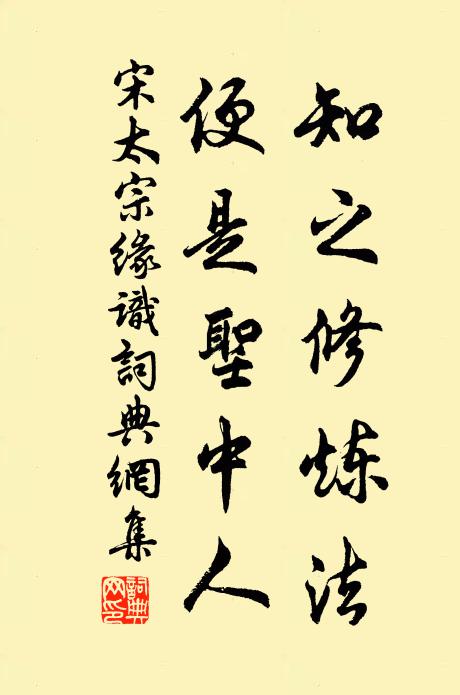 知之修炼法
便是聖中人
宋太宗緣識詞典網集
詞典网印